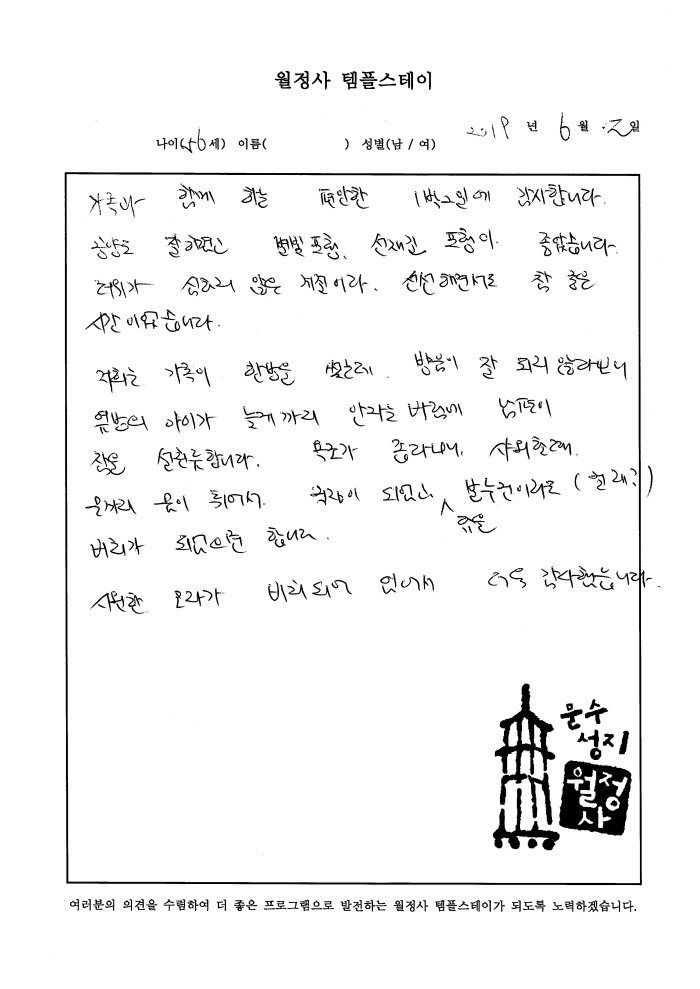 월정사 템플스테이
2019 년 6 월 2 일
나이(56세) 이름( ) 성별(남 / 여)
가족과 함께 하는 편안한 1박2일에 감사합니다.
공양도 잘하였고 별빛 포행, 선재길 포행이 좋았습니다.
더위가 심하지 않은 계절이라. 선선해면서도 참 좋은
시간이었습니다.
저희는 가족이 한방을 썼는데 방음이 잘 되지 않다보니
옆방의 아이가 늦게까지 안자는 바람에 남편이
잠을 설친듯합니다. 욕조가 좁다보니, 샤워할때.
물이 튀어서. 걱정이 되었고 발수건이라도 (걸레?)
휴을
비치가 되었으면 합니다.
시원한 모자가 비치되어 있어서 더욱 감사했습니다.
문수
성지
월정
사
여러분의 의견을 수렴하여 더 좋은 프로그램으로 발전하는 월정사 템플스테이가 되도록 노력하겠습니다.